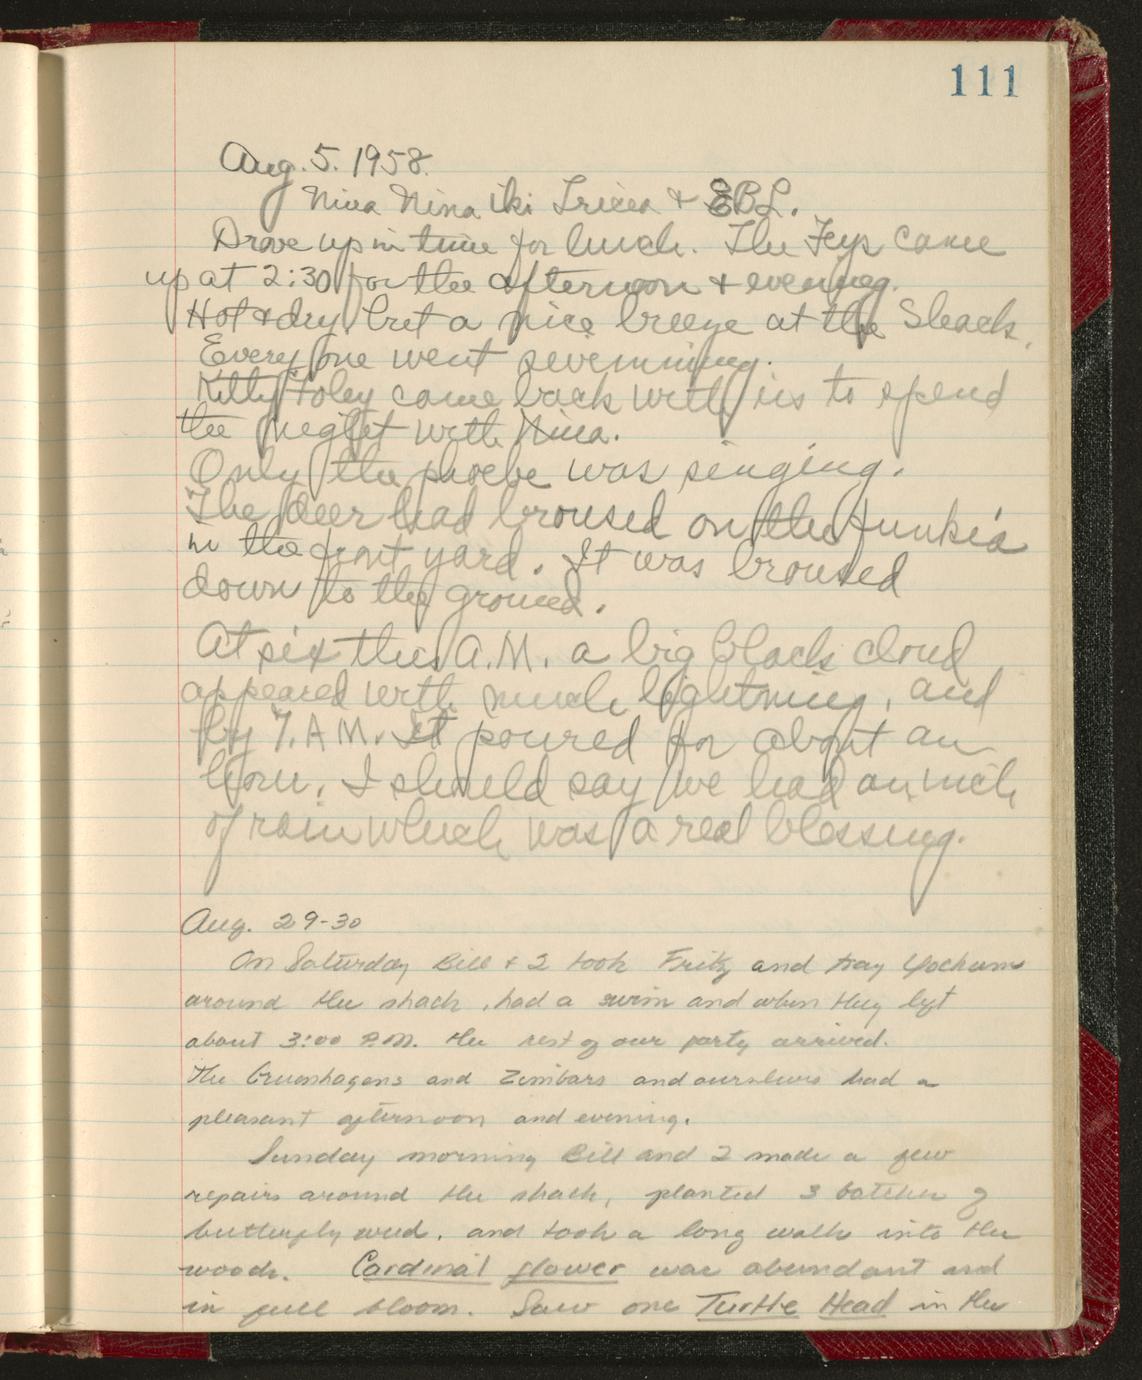 111
Aug. 5. 1958.
Nina Nina Iki Tricia & EBL.
Drove up in time for lunch. The Feys came
up at 2:30 for the afternoon & evening.
Hot & dry but a nice breeze at the Shack.
Everyone went swimming.
Kitty Foley came back with us to spend
the night with Nina.
Only the phoebe was singing.
The deer had broused on the funkia
in the front yard. It was broused
down to the ground.
At six this A.M. a big black cloud
appeared with much lightning, and
by 7. A.M. it poured for about an
hour. I should say we had an inch
of rain which was a real blessing.
Aug. 29-30
On Saturday Bill & I took Fritz and
around the shack, had a swim and when they left
about 3:00 P.M. the rest of our party arrived.
The Gruenhagens and Zimbars and ourselves had a
pleasant afternoon and evening.
Sunday morning Bill and I made a few
repairs around the shack, planted 3 batches of
butterfly weed, and took a long walk into the
woods. Cardinal flower was abundant and
in full bloom. Saw one Turtle Head in the